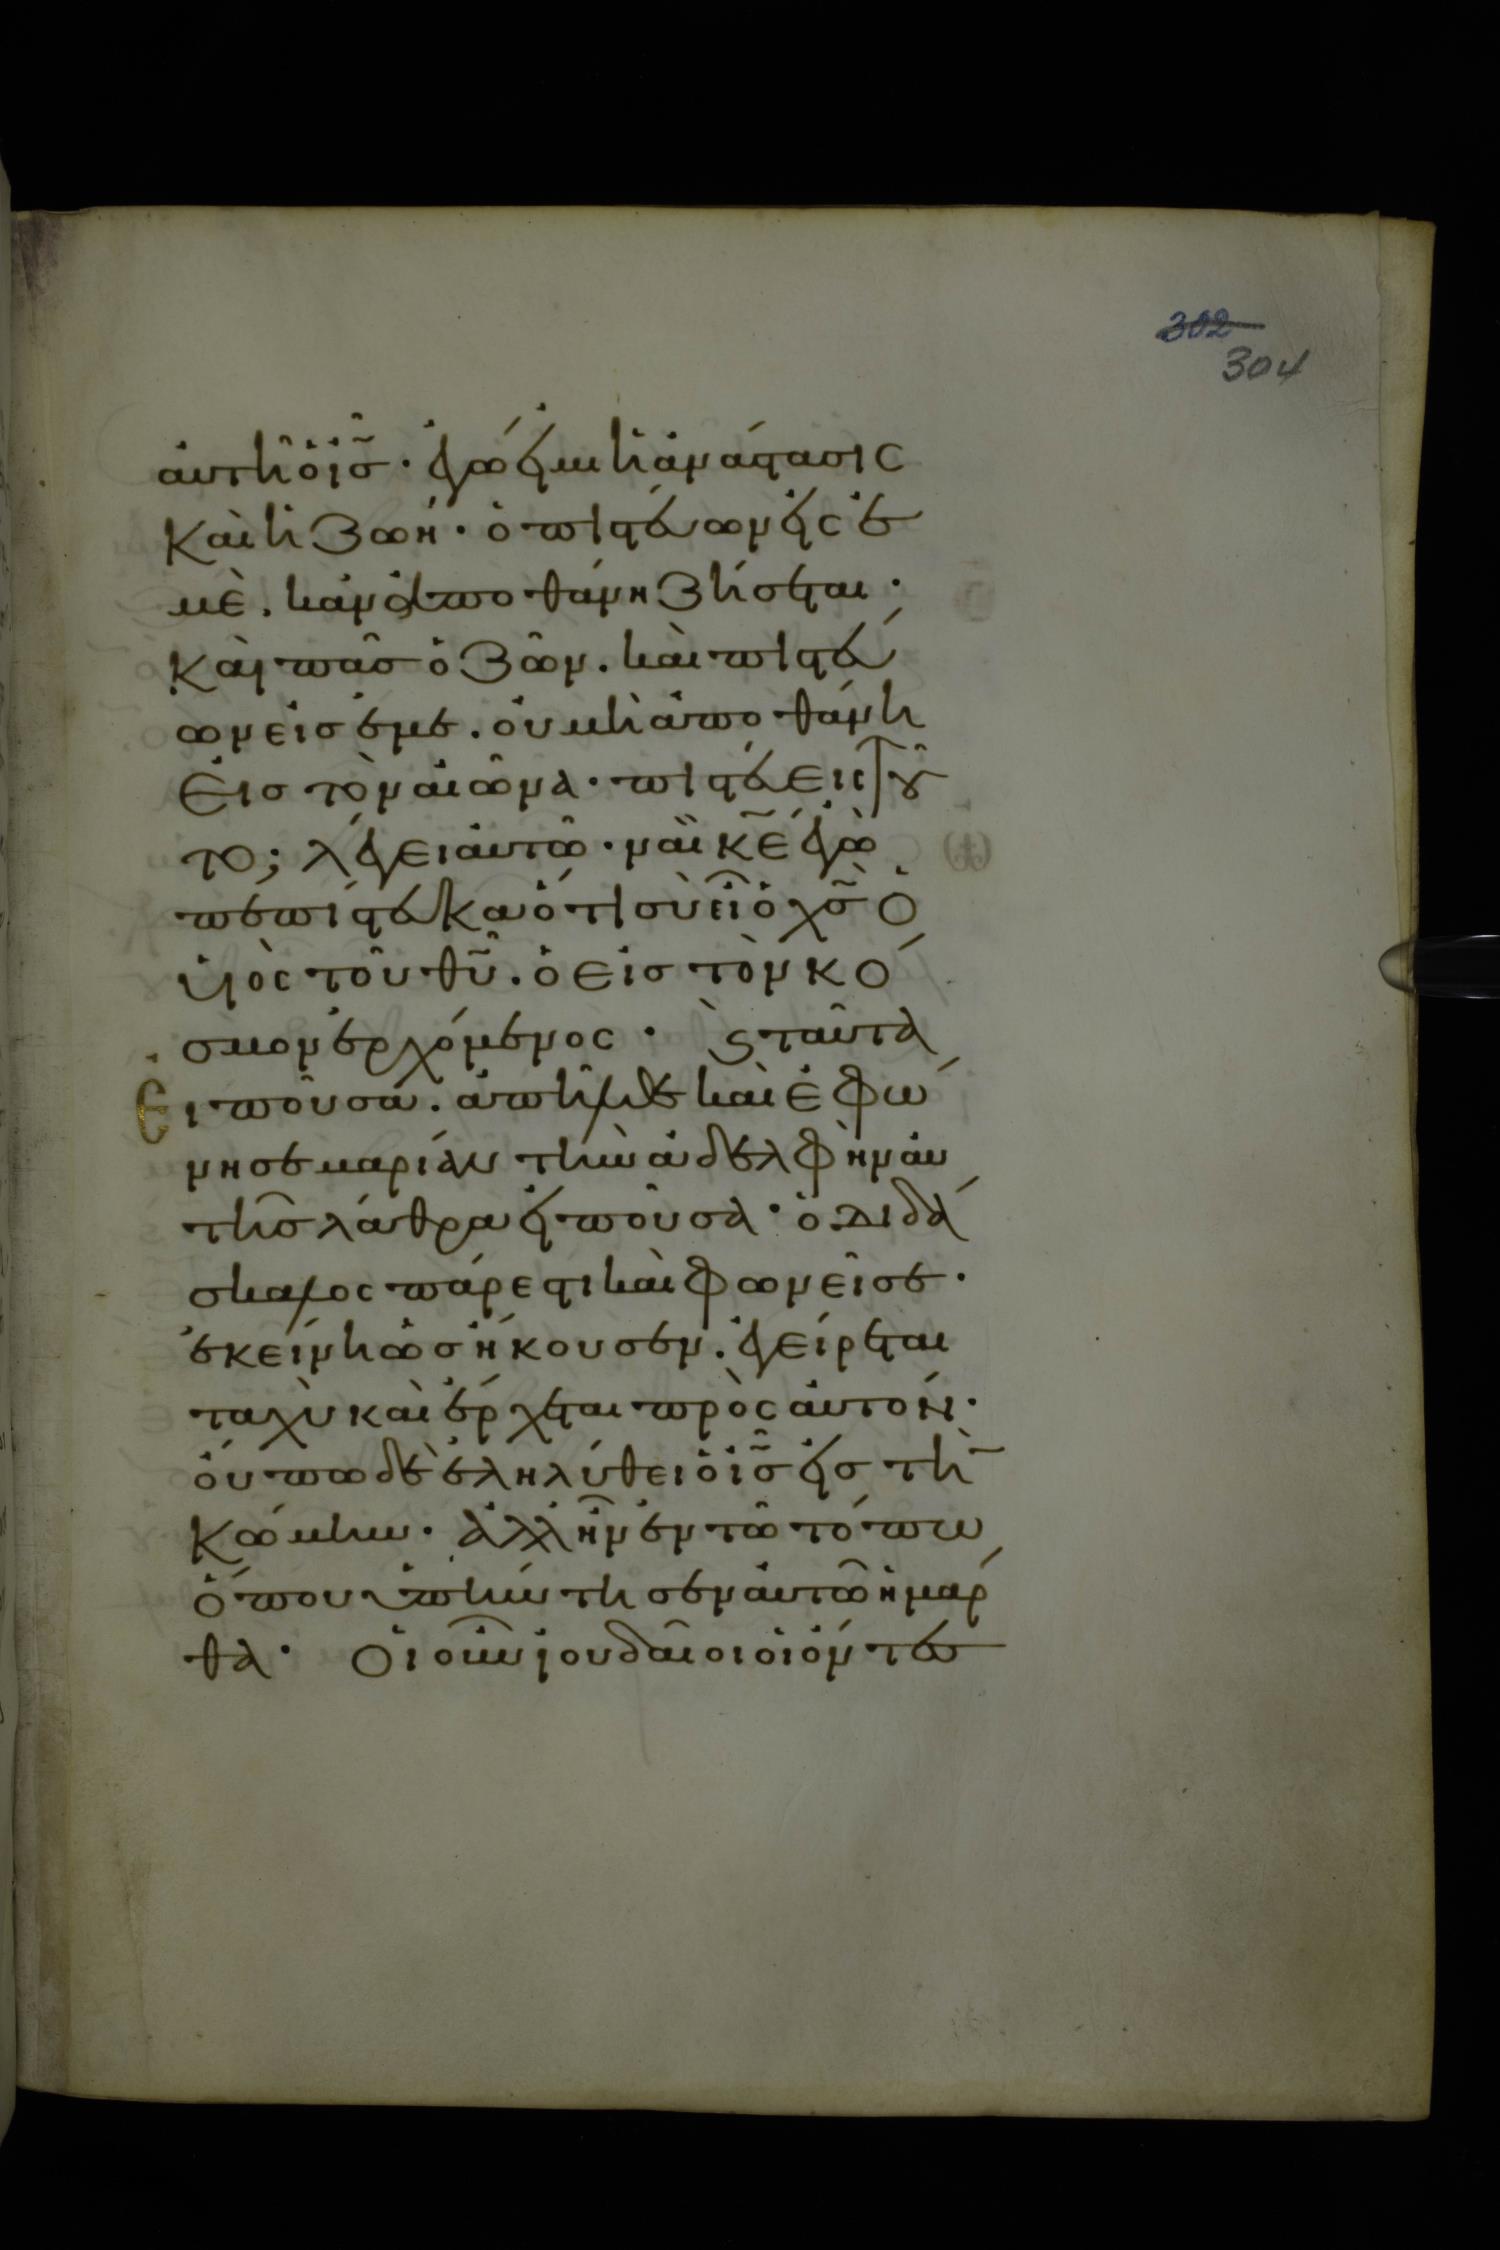 302
304
αὐτῆ ὁ ἰ̅σ̅· ἐγώ εἰμι ἡ ἀνάστασις
καὶ ἡ ζωή· ὁ πιστεύων εἰς ἐ
μὲ. κἀν ἀποθάνη ζήσεται·
Καὶ πᾶσ ὁ ζῶν. καὶ πιστεύ
ων εἰσ ἐμε. οὐ μὴ ἀποθάνη
εἰσ τὸν αἰῶνα· πιστέυεις τοῦ
το; λέγει αὐτῶ· ναὶ κ̅ε̅ ἐγὼ
πεπίστευκα ὅτι σὺ εἶ ὁ χ̅σ̅ ὁ
υἱὸς τοῦ θ̅υ̅. ὁ εἰσ τὸν κό
σμον ἐρχόμενος· ϛ ταῦτα
Ειποῦσα. ἀπῆλθε καὶ ἐφώ
νησε μαρίαν τὴν ἀδελφὴν αὐ
τῆσ λάθρα εἰποῦσα· ὁ διδά
σκαλος πάρεστι καὶ φωνεῖ σε·
ἐκείνη ὡσ ἤκουσεν. ἐγείρεται
ταχὺ καὶ ἔρχεται πρὸς αὐτον·
ὄυπω δὲ ἐληλύθει ὁ ἰ̅σ̅ εἰσ τὴν
κώμην. ἀλλ ἦν ἐν τῶ τόπω
ὅπου ὑπήντησεν αὐτῶ ἡ μάρ
θα· Οἱ οὖν ἰουδαῖοι οἱ ὄντεσ